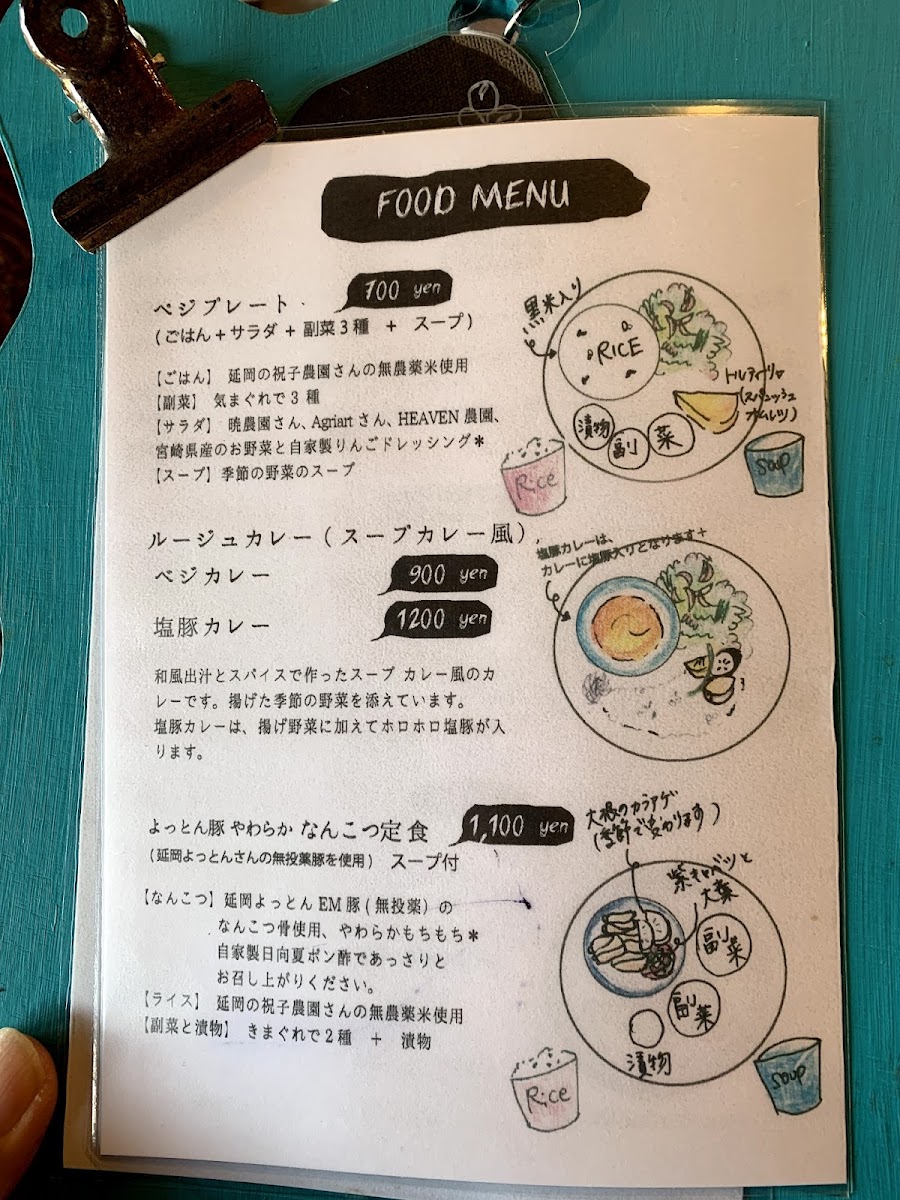 FOOD MENU
ベジプレート 700 yen
(ごはん+サラダ+副菜3種 + スープ)
【ごはん】 延岡の祝子農園さんの無農薬米使用
【副菜】 気まぐれで3種
【サラダ】 暁農園さん、Agriartさん、HEAVEN農園、
宮崎県産のお野菜と自家製りんごドレッシング*
【スープ】季節の野菜のスープ
黒米入り
RICE
トルティージャ
(スパニッシュ
オムレツ)
漬物
副
菜
Rice
Soup
ルージュカレー(スープカレー風)
ベジカレー 900 yen
塩豚カレー 1200 yen
塩豚カレーは、
カレーに塩豚入りとなります+
和風出汁とスパイスで作ったスープ カレー風のカ
レーです。揚げた季節の野菜を添えています。
塩豚カレーは、揚げ野菜に加えてホロホロ塩豚が入
ります。
よっとん豚 やわらか なんこつ定食 1,100 yen
(延岡よっとんさんの無投薬豚を使用) スープ付
【なんこつ】延岡よっとんEM豚(無投薬)の
なんこつ骨使用、やわらかもちもち*
自家製日向夏ポン酢であっさりと
お召し上がりください。
【ライス】 延岡の祝子農園さんの無農薬米使用
【副菜と漬物】 きまぐれで2種 + 漬物
大根のカラアゲ
(季節で変わります)
紫キャベツと
大葉
副菜
副菜
漬物
Rice
soup